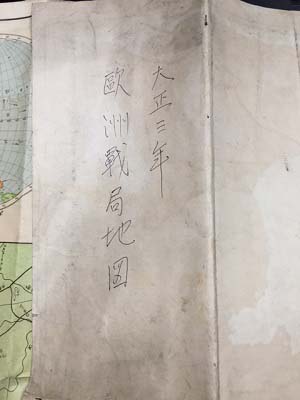 大正三年
欧洲戰局地図